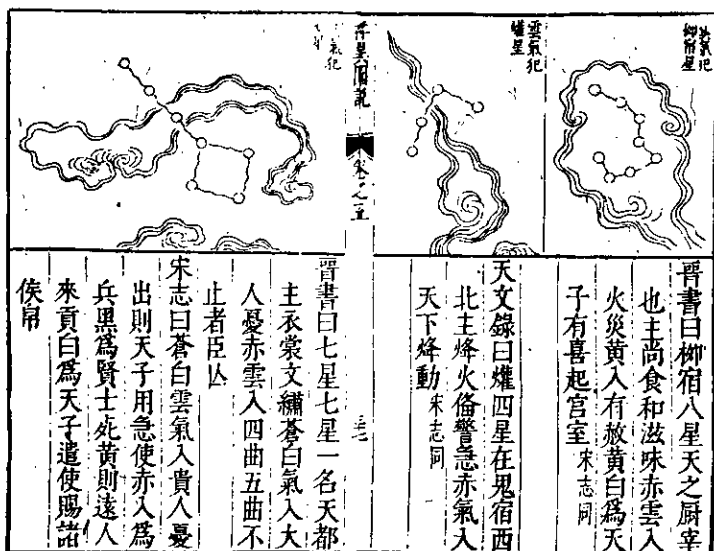 雲氣犯
柳宿星
晋書曰柳宿八星天之厨宰
也主尚食和滋味赤雲入
火災黄入有赦黄白爲天
子有喜起宫室宋志同
雲氣犯
爟星
天文錄曰爟四星在鬼宿西
北主烽火俻警急赤氣入
天下烽動宋志同
卷之五
氣犯
晋書曰七星七星一名天都
主衣裳文繡蒼白氣入大
人憂赤雲入四曲五曲不
止者臣亾
宋志曰蒼白雲氣入貴人憂
出則天子用急使赤入爲
兵黑爲賢士死黄則遠人
來貢白爲天子遣使賜諸
侯帛